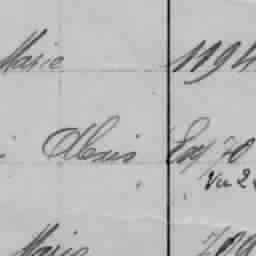 Marie 1194
Alexis Ex/70
Vu 2
Marie 799